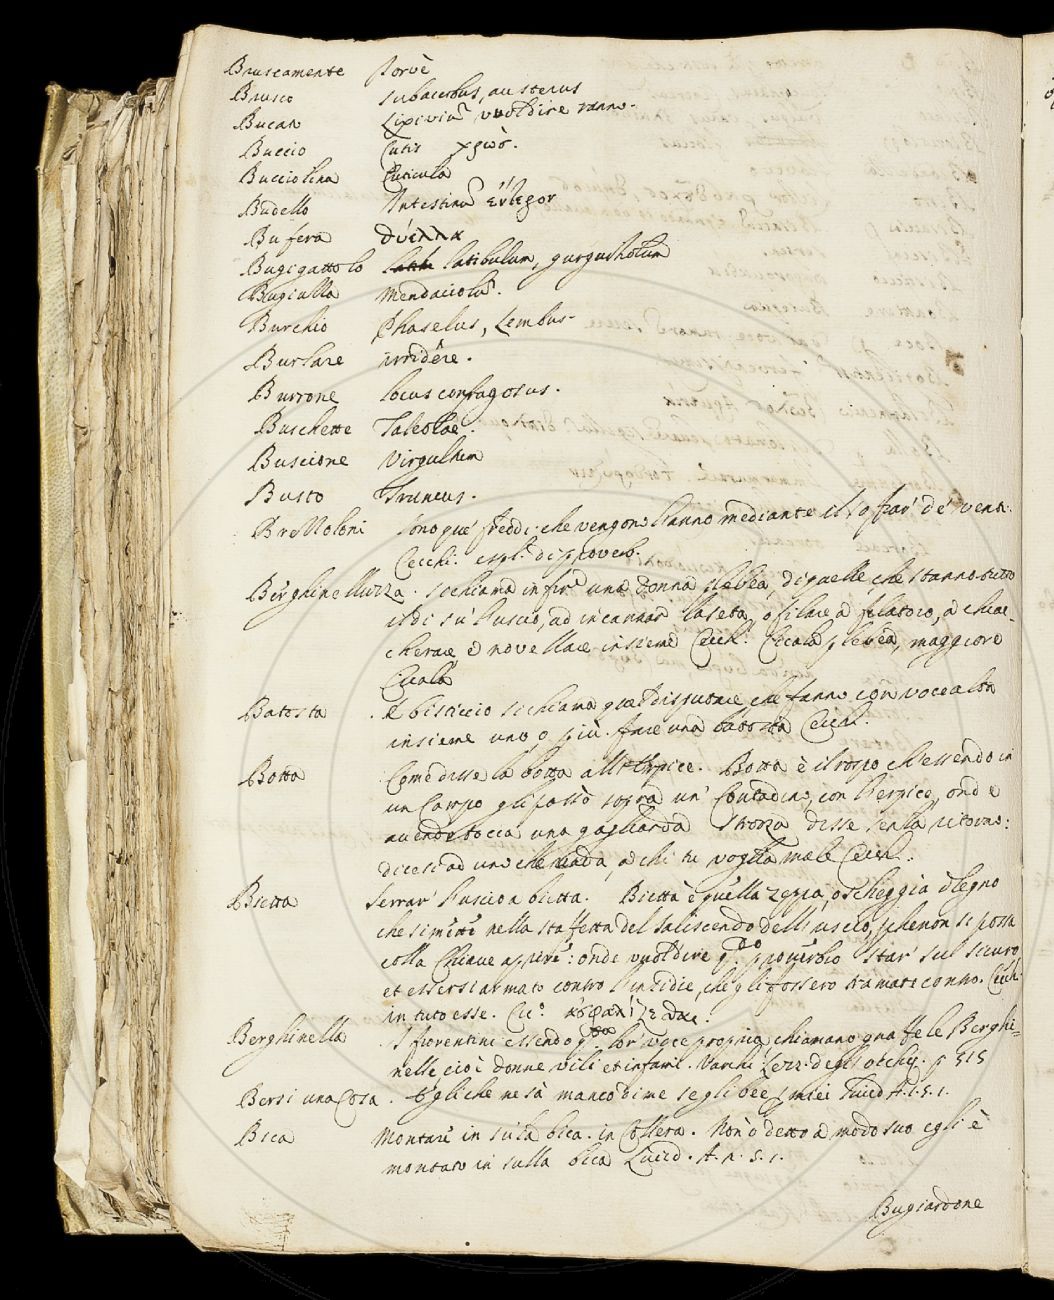 Bruscamente torvè
Brusco subacerbus, austerus
Bucato Lixivium, vuol dire ranno.
Buccio Cutis
Bucciolina Cuticula
Budello Intestinum
Bufera
Bugigattolo latibulum, gurgustiolum
Bugiuzza Mendaciolum.
Burchio Phaselus, Lembus.
Burlare irridere.
Burrone locus confragosus.
Buschette Taleolae.
Buscione Virgultum
Busto Truncus.
Brolloloni sono que' freddi che vengono l'anno mediante il soffiar de' venti.
Cecchi. di proverb.
Berghinelluzza. si chiama in Firenze una donna plebea, di quelle, che stanno tutto
il dì su l'uscio, ad incannar la seta, o filare a filatoio, a chiac-
cherare e novellare insieme Cecch. plebea, maggiore
Batosta e bisticcio si chiama quel disputare che fanno con voce alta
insieme uno, o più. fare una batosta Cecch.
Botta Come disse la botta all'erpice. Botta è il rospo ch'essendo in
un Campo gli passò sopra un Contadino, con l'erpice, onde
avendo tocca una gagliarda disse senza ritorno:
dicesi ad uno che vada, a chi tu voglia male Cecch.
Bietta Serrar l'uscio a bietta. Bietta è quella zeppa, o scheggia di legno
che si mette nella staffetta del saliscendo dell'uscio, perche non si possa
colla Chiave aprire: onde vuol dire q.do proverbio star sul sicuro
et essersi armato contro l'insidie, che gli fossero tramate contro. Cecch.
in tuto esse. Cic.
Berghinella I fiorentini essendo lor voce propria chiamano qua fe le Berghi=
nelle cioè donne vili et infami. Varchi Lezz. degli occhi. p 515
Bersi una Cosa. Egli che ne sà manco di me se gli bee A.1.s.1.
Bica Montare in su la bica. in Collera. Non ò detto a modo suo egli è
montato in sulla bica Lucid. A. s. 1.
Bugiardone